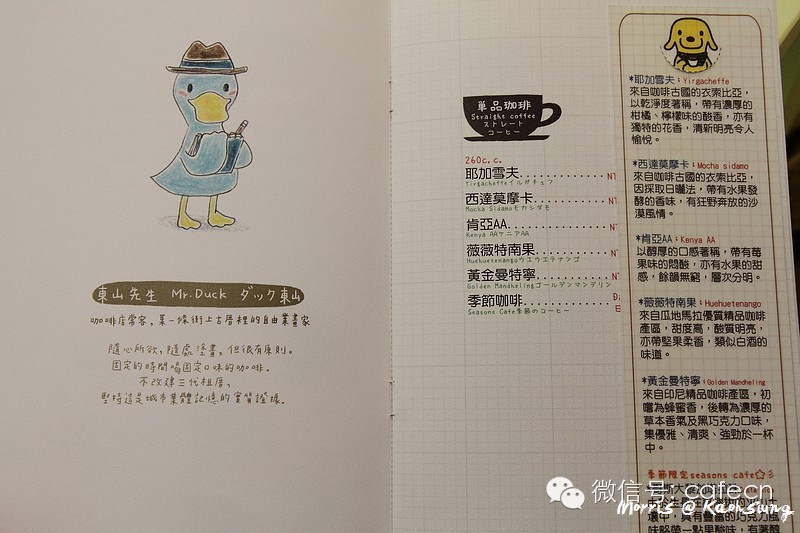 東山先生 Mr.Duck ダック東山
咖啡店常客,某一條街上古厝裡的自由業畫家
隨心所欲,隨處塗畫,但很有原則。
固定的時間喝固定口味的咖啡。
不改建三代祖厝,
堅持這是城市集體記憶的實質證據。
單品珈琲
Straight coffee
ストレート
コーヒー
260c.c.
耶加雪夫
Yirgacheffeイルガチェフ
西達莫摩卡
Mocha Sidamoモカシダモ
肯亞AA
Kenya AAケニアAA
薇薇特南果
Huehuetenangoウエウエテナンゴ
黃金曼特寧
Golden Mandhelingゴールデンマンデリン
季節咖啡
Seasons Cafe季節のコーヒー
*耶加雪夫:Yirgacheffe
來自咖啡古國的衣索比亞,
以乾淨度著稱,帶有濃厚的
柑橘、檸檬味的酸香,亦有
獨特的花香,清新明亮令人
愉悅。
*西達莫摩卡:Mocha sidamo
來自咖啡古國的衣索比亞,
因採取日曬法,帶有水果發
酵的香味,有狂野奔放的沙
漠風情。
*肯亞AA:Kenya AA
以醇厚的口感著稱,帶有莓
果味的悶酸,亦有水果的甜
感,餘韻無窮,層次分明。
*薇薇特南果:Huehuetenango
來自瓜地馬拉優質精品咖啡
產區,甜度高,酸質明亮,
亦帶堅果柔香,類似白酒的
味道。
*黃金曼特寧:Golden Mandheling
來自印尼精品咖啡產區,初
嚐為蜂蜜香,後轉為濃厚的
草本香氣及黑巧克力口味,
集優雅、清爽、強勁於一杯
中。
季節限定seasons cafe☆彡
環中,具有豐富的巧克力風
味略帶一點果酸味,有著醇
微信号:cafecn
Morris @ KaohSiung